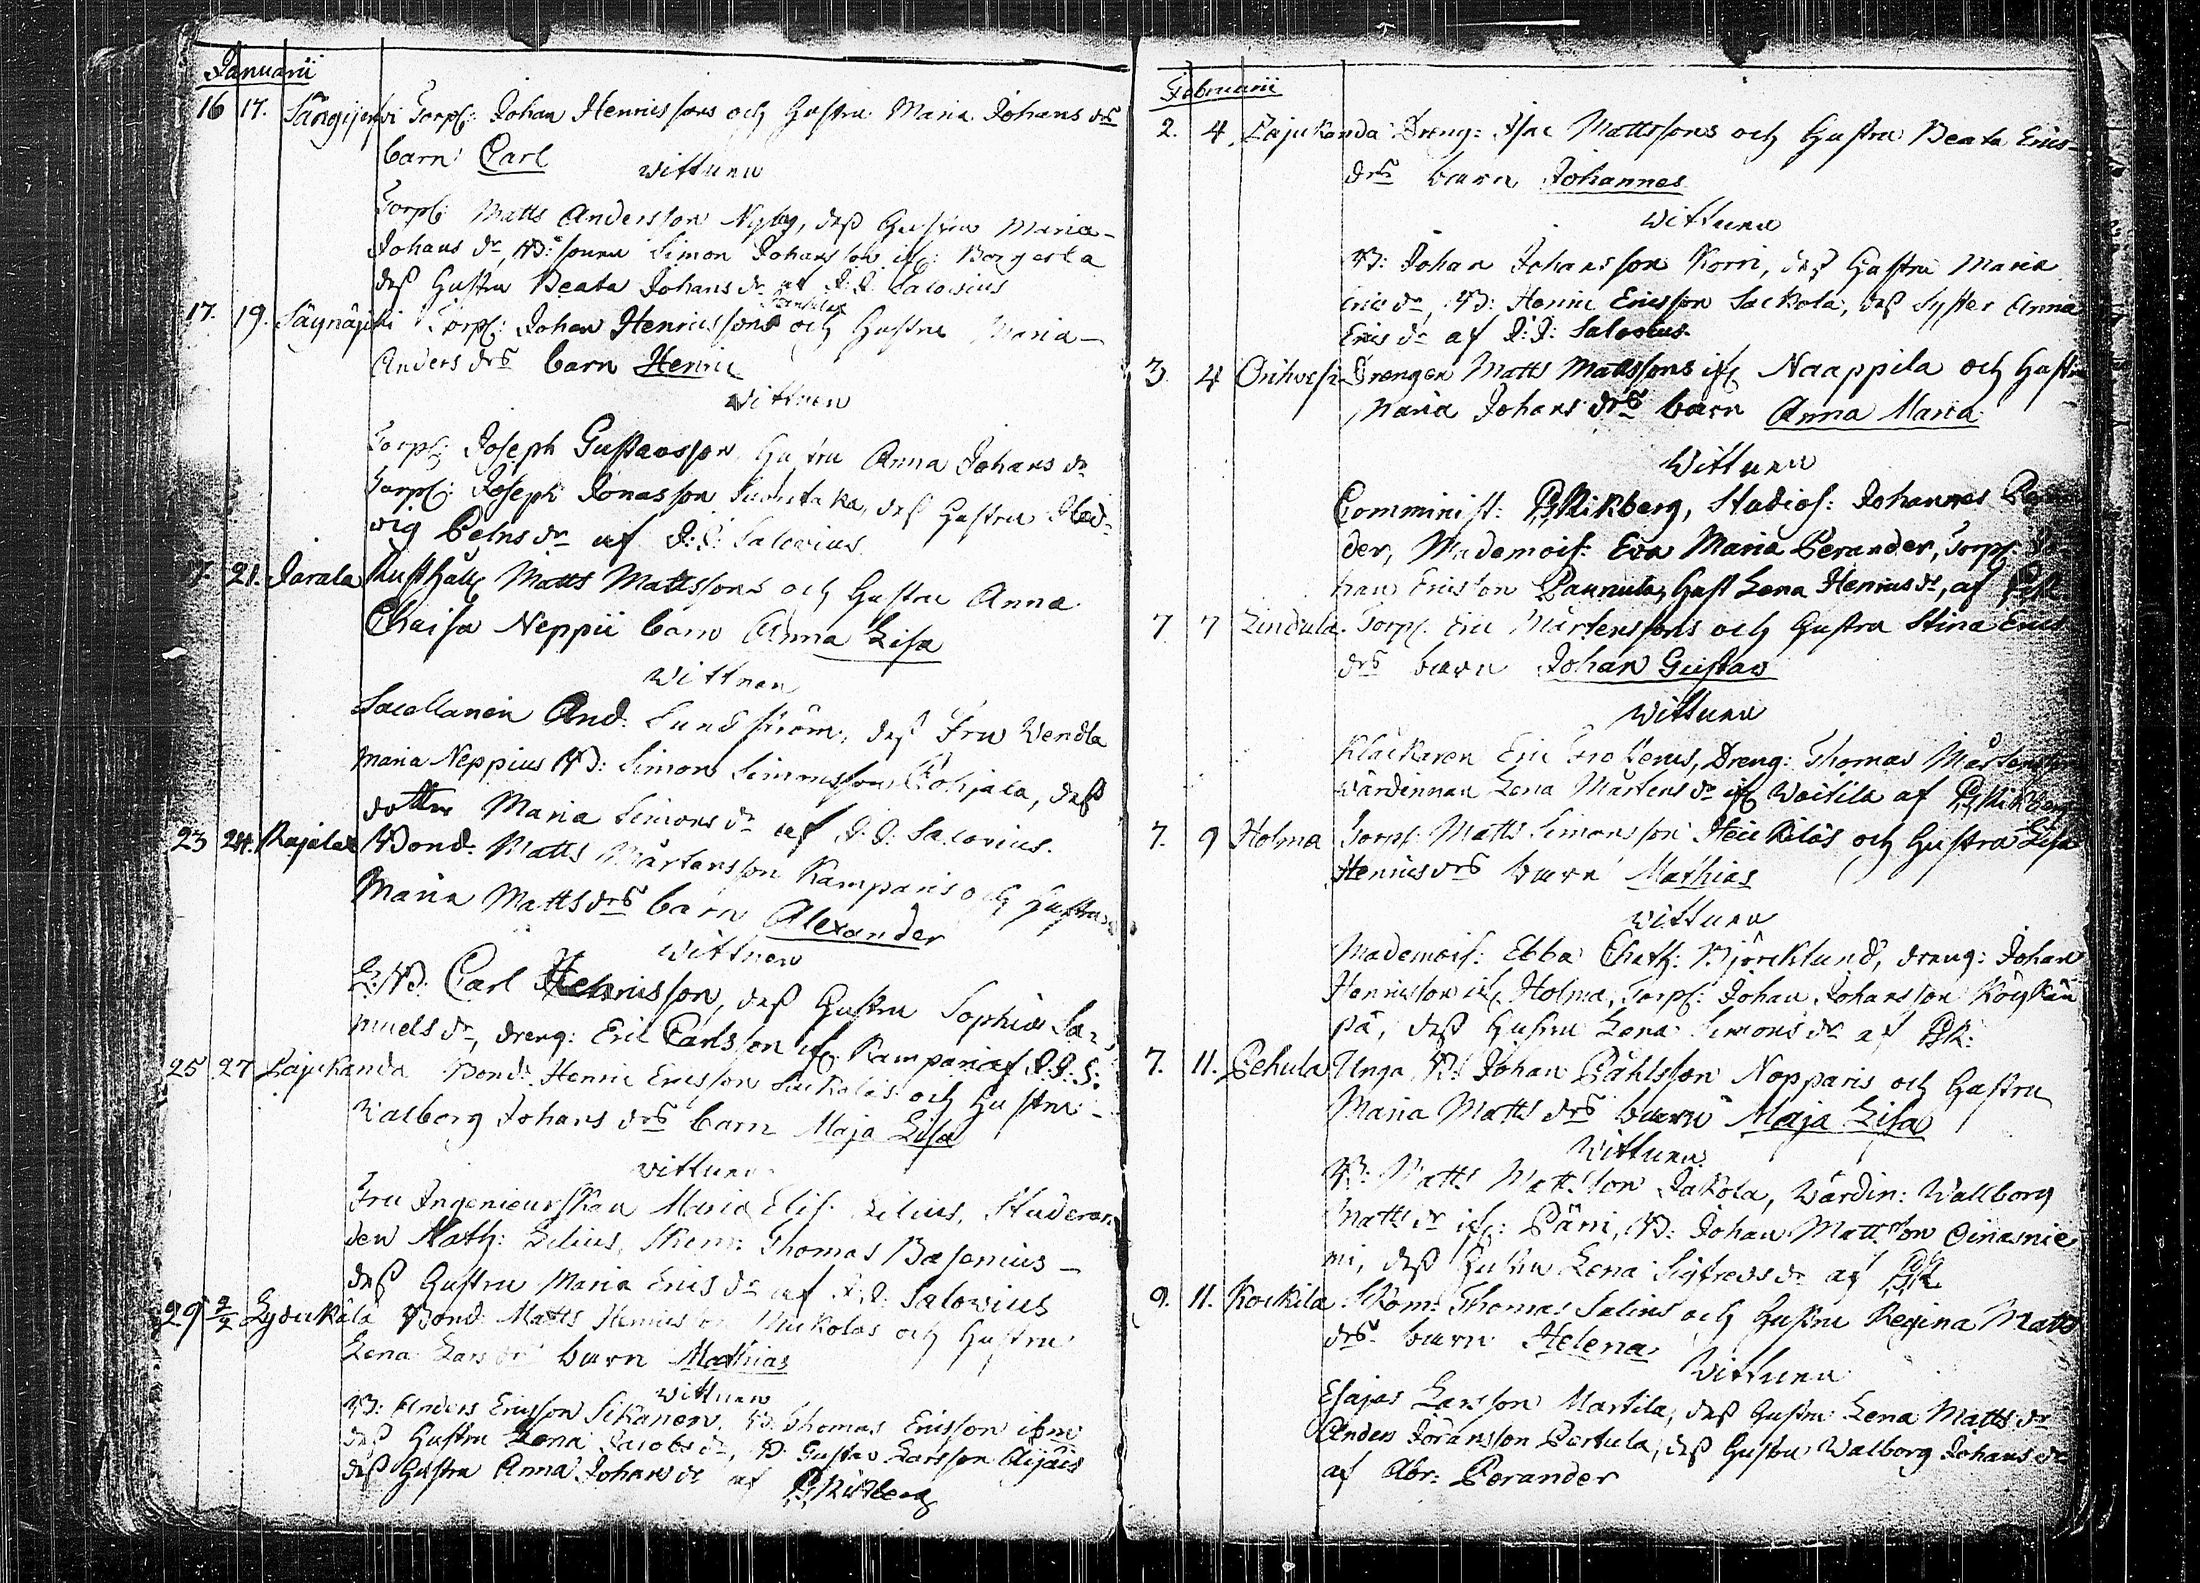 Januarii
16 17. Sängijerfvi Torp: Johan Henricssons och hustru Maria Johans drs
barn Carl
Wittnen
Torp: Matts Andersson Nyby, dess hustru Maria
Johans dr, B: sonen Simon Johansson ifr: Borgerla
dess hustru Beata Johans dr af J. J. Salovius
17. 19. Säynäjoki Torp: Johan Henricssons och hustru Maria
Anders drs barn Henric
Wittnen
Torp: Joseph Gustavsson, hustru Anna Johans dr
Torp: Joseph Jonasson dess hustru Hed-
vig dr af J: J: Salovius.
21. Jarala Rusthåll: Matts Mattssons och hustru Anna
Chaisa Neppii barn Anna Lisa
Wittnen
Sacellanen And: Sundström, dess Fru Wendla
Maria Neppius B: Simon Simonsson Pohjala, dess
dotter Maria Simons dr af J. J. Salovius.
23 24. Rajala Bond: Matts Mårtensson Kamparis och hustru
Maria Matts drs barn Alexander
Wittnen
L: B: Carl Henricsson, dess hustru Sophia Sa-
muels dr, dreng: Eric Carlsson ifr: Kampari af J. J. S:
25 27 Lajukanda Bond: Henric Ericsson och hustru
Walborg Johans drs barn Maja Lisa
Wittnen
Fru Ingenieurskan Maria Elis: Lilius, Studeran-
den Math: Lilius, Thomas Basenius
dess hustru Maria Erics dr af J. J. Salovius
29 2/2 Lydickälä Bond: Matts Henricsson och hustru
Lena Lars drs barn Mathias
Wittnen
B: Anders Ericsson Sikanen, B: Thomas Ericsson
dess hustru Lena Jacobs dr, B: Gustav Larsson Äijäis
dess hustru Anna Johans dr af Rikberg
Februarii
2. 4. Lajukanda Dreng: Isac Mattssons och hustru Beata Erics-
drs barn Johannes
Wittnen
B: Johan Johansson Korri, dess hustru Maria
Erics dr, B: Henric Ericsson Sackola, dess syster Anna
Erics dr af J: J: Salovius.
3. 4 Orihvesi Drengen Matts Mattssons ifr Naappila och hustru
Maria Johans drs barn Anna Maria
Wittnen
Comminist: Rikberg, Studios: Johannes
der, Mademois: Eva Maria Perander, Torp: Jo-
han Ericsson Pannula, hust Lena Henrics dr, af
7 7 Lindula. Torp: Eric Mårtenssons och hustru Stina Erics
drs barn Johan Gustav
Wittnen
Klåckaren Eric Frosterus, Dreng: Thomas Mårtensson
wärdinnan Lena Mårtens dr ifr Woitila af Rikberg
7. 9 Holma Torp: Matts Simonsson Heickiläs och hustru Lisa
Henrics drs barn Mathias
Wittnen
Mademois: Ebba Chath: Björcklund, dreng: Johan
Henricsson ifr Holma, Torp: Johan Johansson Köykän
pä, dess hustru Lena Simons dr af
7. 11. Pehula Unga B: Johan Påhlsson Nopparis och hustru
Maria Matts drs barn Maja Lisa
Wittnen
B: Matts Mattsson Jakola, wärdin: Wallborg
Matts dr ifr: Pärri, B: Johan Mattsson Oinasnie
mi, dess hustru Lena Sigfreds dr af
9. 11. Kockila Thomas Salins och hustru Regina Matts
drs barn Helena
Wittnen
Esajas Larsson Martila, dess hustru Lena Matts dr
Anders Göransson Pertula, dess hustru Walborg Johans dr
af Abr: Perander